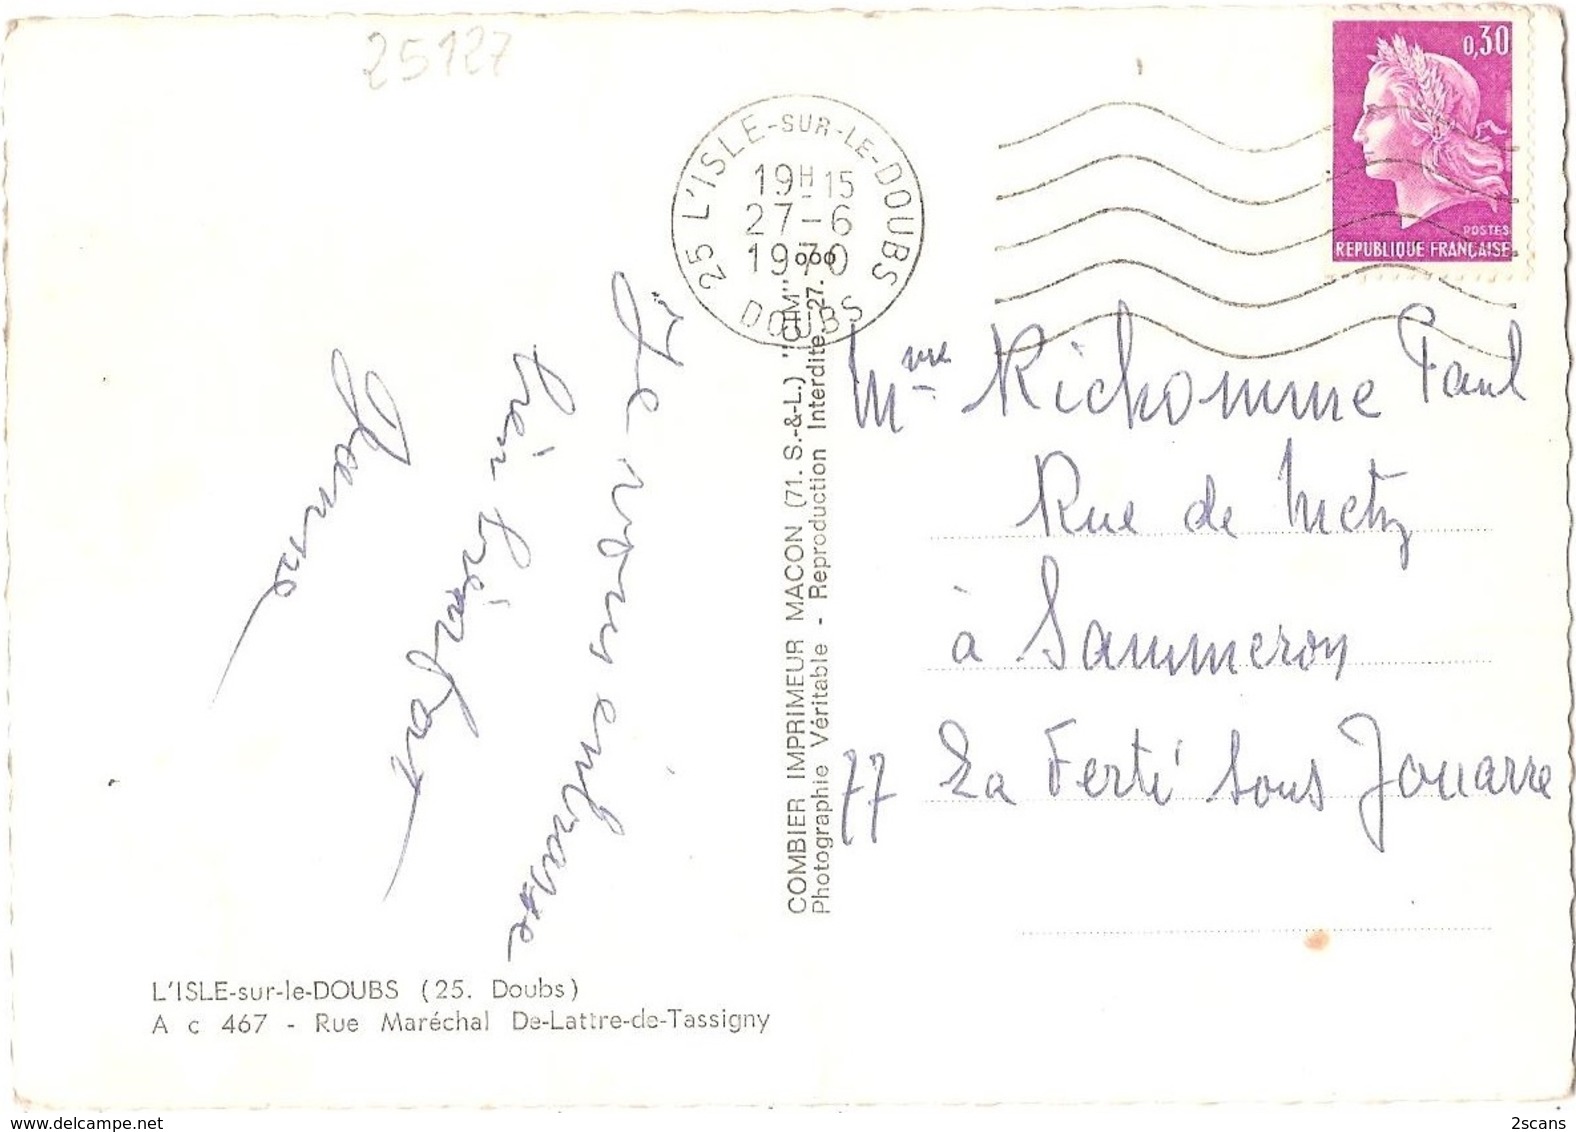 25127
25 L'ISLE-SUR-LE-DOUBS
19H15
27-6
1970
DOUBS
0,30
POSTES
REPUBLIQUE FRANÇAISE
Je vous embrasse
bien bien fort
Jeanne
COMBIER IMPRIMEUR MACON (71. S.-&-L.) "CIM"
Photographie Véritable - Reproduction Interdite
Mme Richomme Paul
Rue de Metz
à Sammeron
77 La Ferté sous Jouarre
L'ISLE-sur-le-DOUBS (25. Doubs)
A c 467 - Rue Maréchal De-Lattre-de-Tassigny
www.delcampe.net
2scans